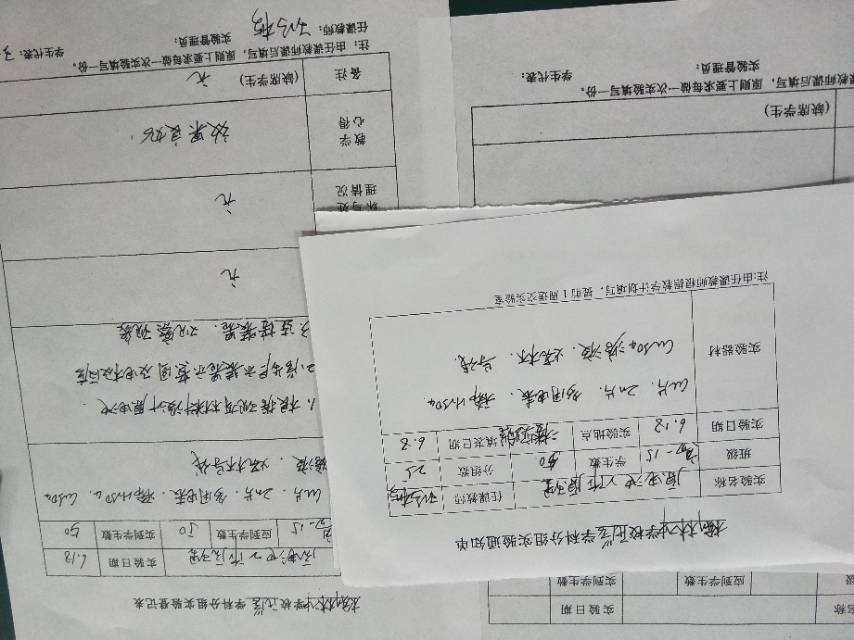 榆林中学校化学学科分组实验通知单
实验名称 原电池工作原理 任课教师
班级 高一15 学生数 50 分组数 25
实验日期 6.18 实验地点 填表日期 6.8
实验器材 Cu片、Zn片、多用电表、稀H₂SO₄、
CuSO₄溶液、烧杯、导线
注:由任课教师根据教学计划填写,提前1周送交实验室
榆林中学校化学学科分组实验登记表
原电池工作原理 实验日期 6.18
高一15 应到学生数 50 实到学生数 50
Cu片、Zn片、多用电表、稀H₂SO₄、CuSO₄
溶液、烧杯导线
1、根据现有材料设计原电池、
3、连接装置、观察现象
无
理情况 无
教学心得 效果良好、
备注 (缺席学生) 无
注:由任课教师课后填写,原则上要求每做一次实验填写一份。
任课教师: 实验管理员: 学生代表:
实验日期
应到学生数 实到学生数
(缺席学生)
教师课后填写,原则上要求每做一次实验填写一份。
实验管理员: 学生代表: